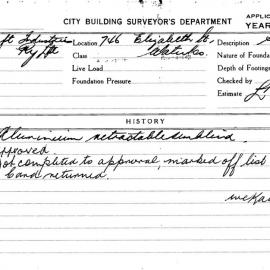 CITY BUILDING SURVEYOR'S DEPARTMENT
APPLIC
YEAR
Location 746 Elizabeth St.
Description
Class Waterloo.
Nature of Founda
Live Load
Depth of Footing
Foundation Pressure
Checked by
Estimate
HISTORY
Aluminium retractable sunblind.
pproved
ot completed to approval, marked off list
& and returned.